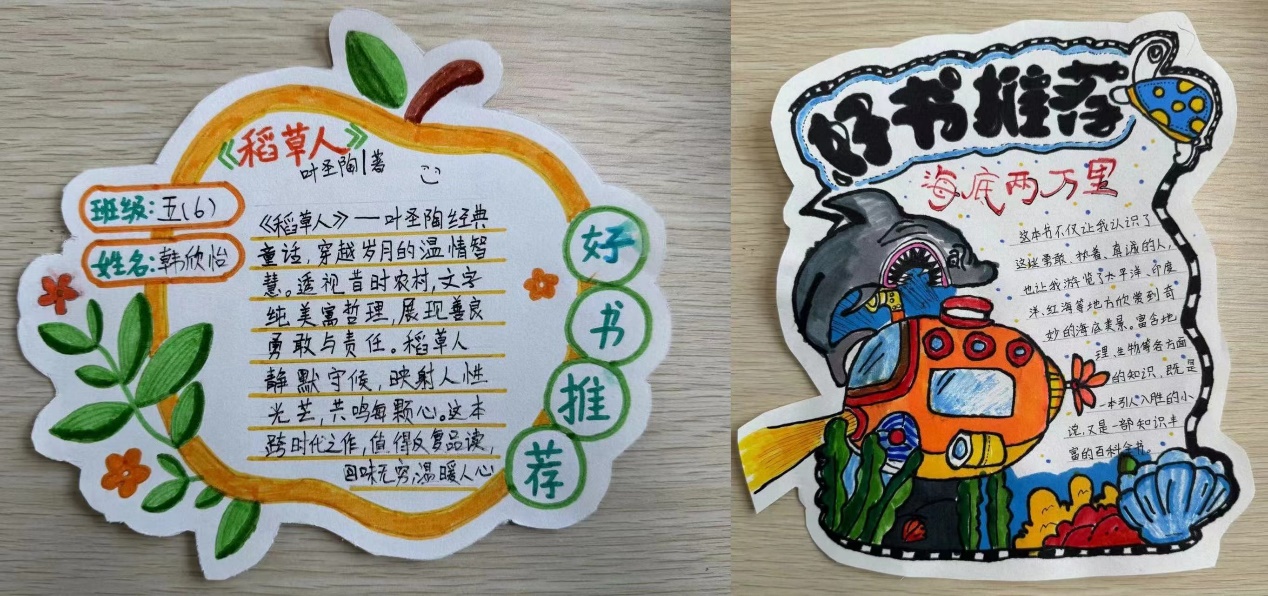 《稻草人》
叶圣陶|著
班级:五(6)
姓名:韩欣怡
《稻草人》—叶圣陶经典
童话,穿越岁月的温情智
慧。透视昔时农村,文字
纯美寓哲理,展现善良
勇敢与责任。稻草人
静默守候,映射人性
光芒,共鸣每颗心。这本
跨时代之作,值得反复品读,
回味无穷,温暖人心
好
书
推
荐
好书推荐
海底两万里
这本书不仅让我认识了
这些勇敢、执着、真诚的人,
也让我游览了太平洋、印度
洋、红海等地方欣赏到奇
妙的海底美景。富含地
理、生物等各方面
的知识,既是
一本引人入胜的小
说,又是一部知识丰
富的百科全书。